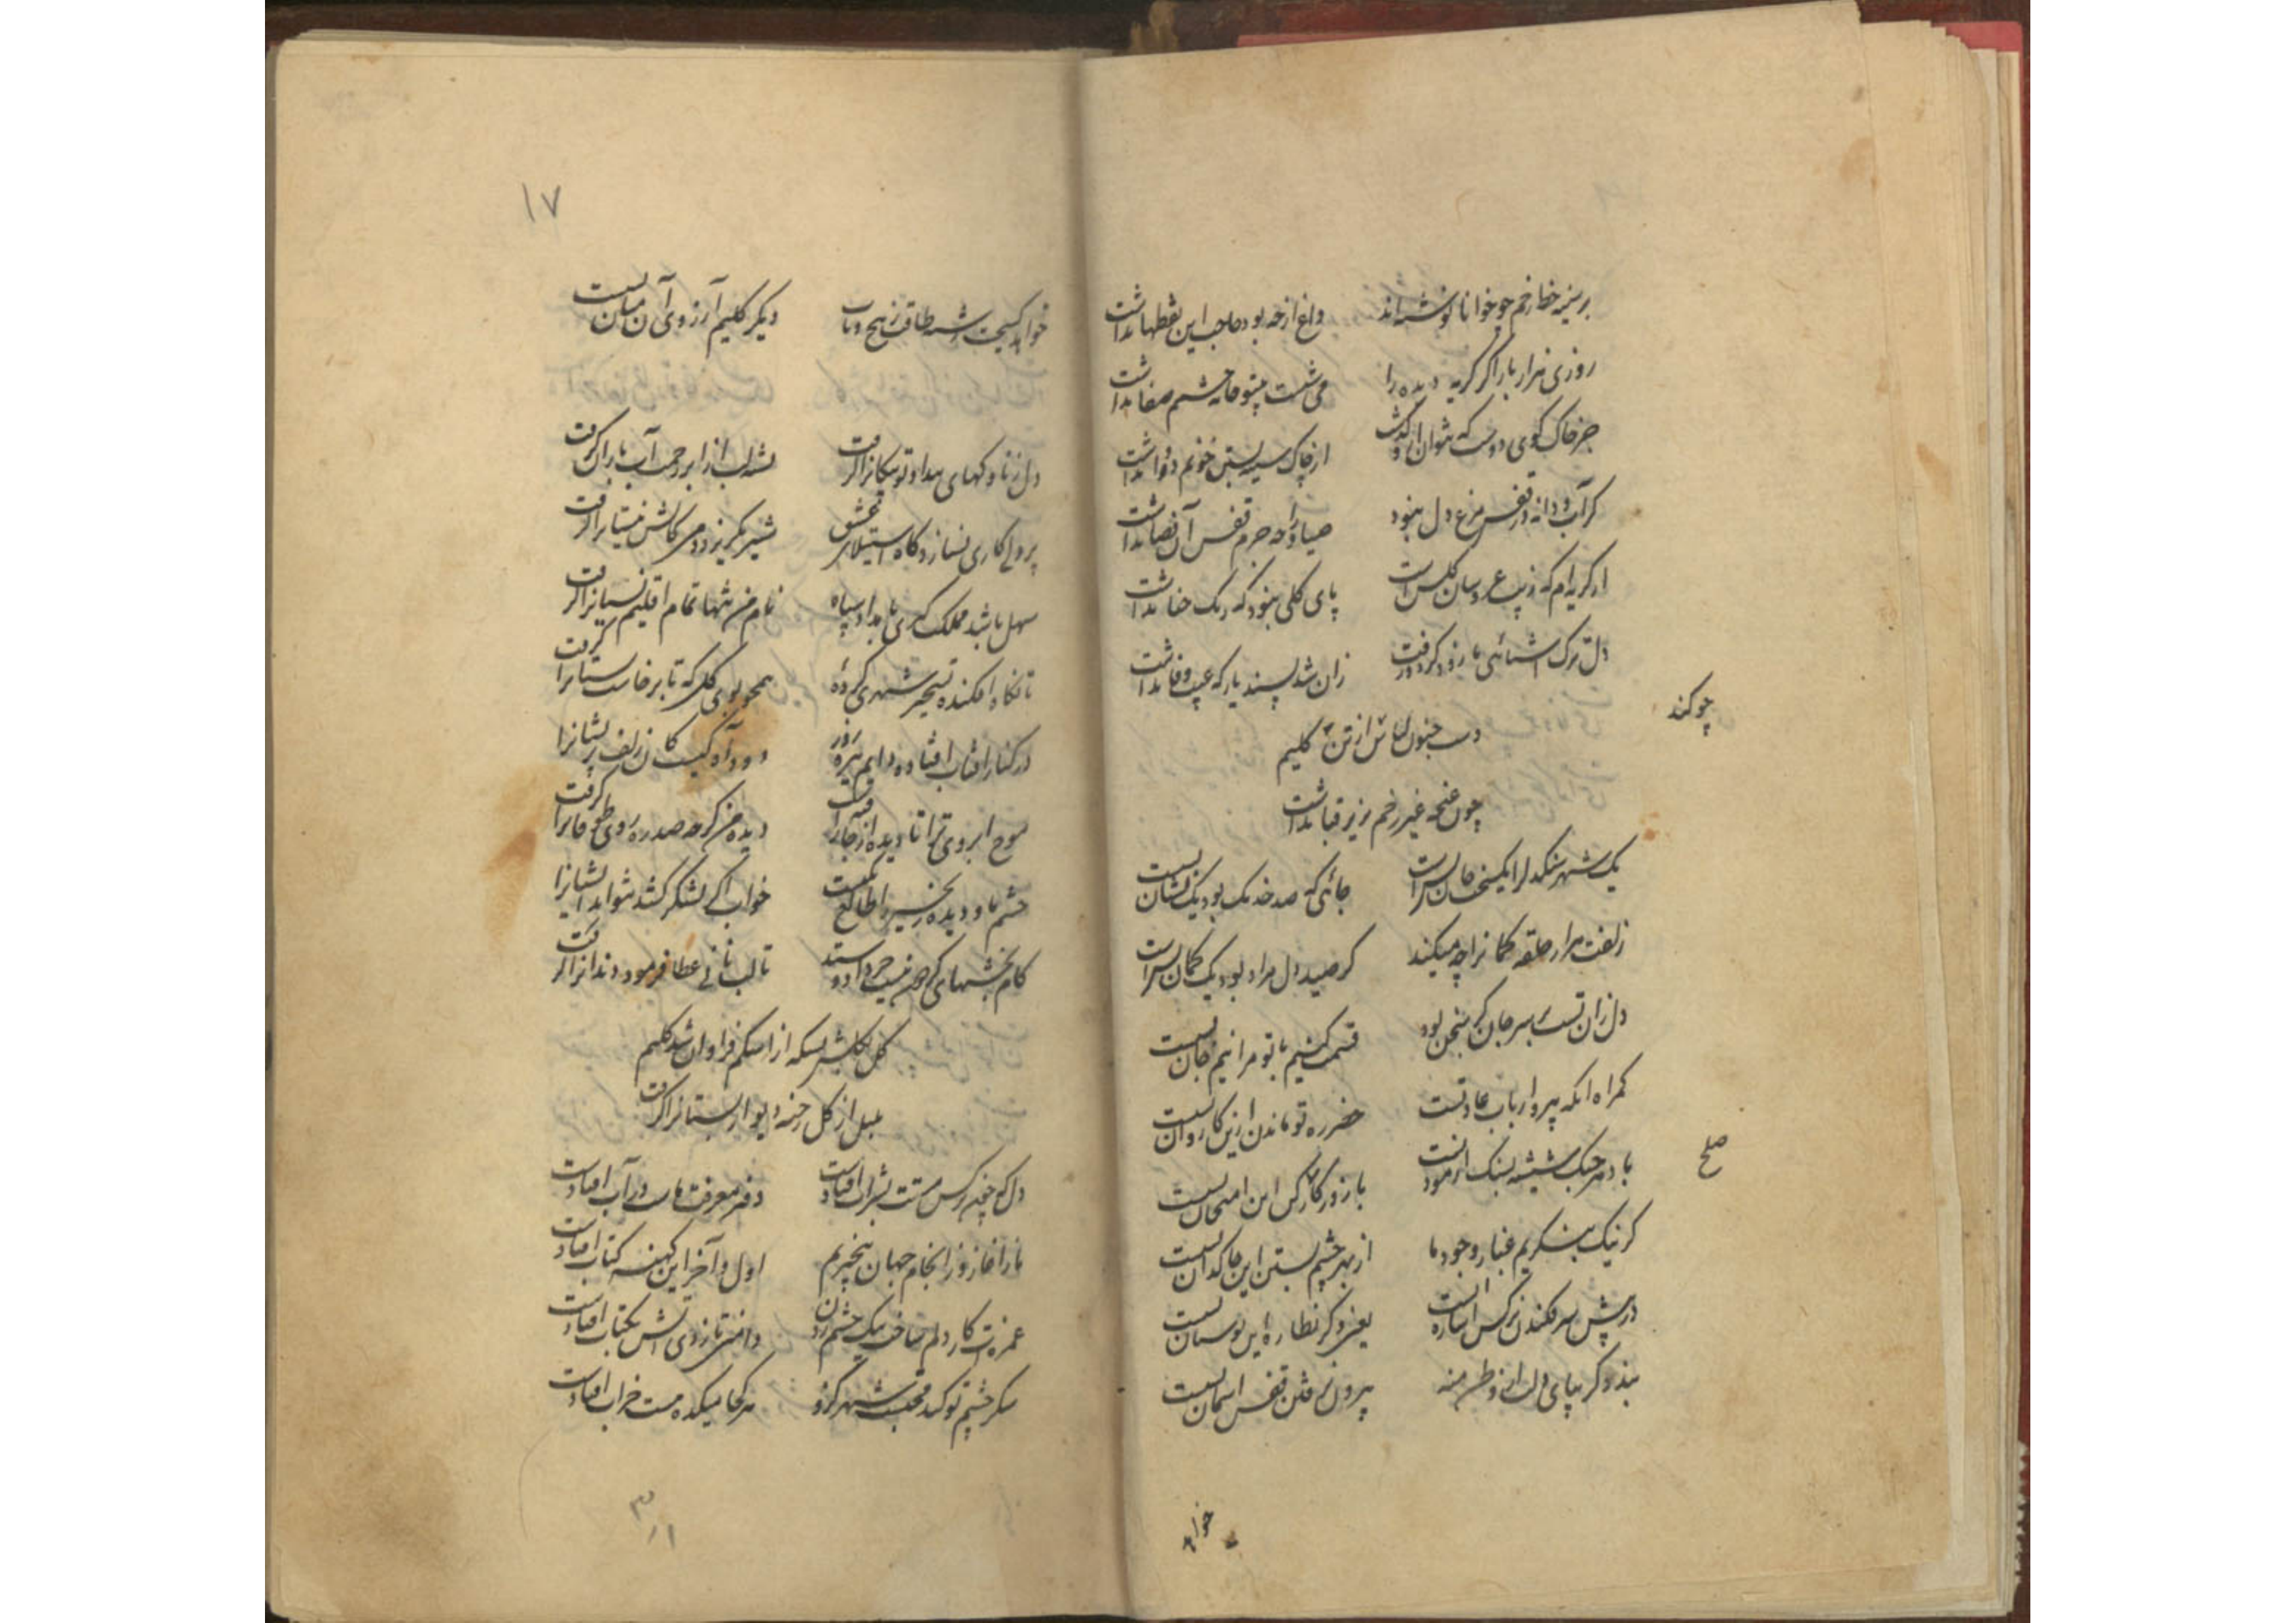 بر سینه خط زخم چو خوانا نوشته‌اند داغ از چه بود حاجب این نقطها نداشت
روزی هزار بار اگر گریه دیده را می شست بیتو خانه چشمم صفا نداشت
جز خاک کوی دوست که نتوان ازو گذشت از چاک سینه بستن خونم دوا نداشت
گر آب و دانه در قفس مرغ دل نبود صیاد را چه جرم قفس آن فضا نداشت
از گریه‌ام که زیب عروسان گلشن است پای گلی نبود که رنگ حنا نداشت
دل ترک آشنائی ما زود کرد و رفت زان شد پسند یار که عیب وفا نداشت
چو کند
دست جنون لباس از تن کلیم
چون غنچه غیر زخم بزیر قبا نداشت
یک شهر سنگدل را یکسخت جان بس است جائی که صد خدنگ بود یک نشان بس است
زلفت هزار حلقه کمانرا چه میکند گر صید دل مراد بود یک کمان بس است
دل زان تست بر سر جان گر سخن بود قسمت کنیم با تو مرا نیم جان بس است
گمراه آنکه پیرو ارباب عادتست خضر ره تو ماندن ازین کاروان بس است
صلح
با دهر جنگ شیشه بسنگ آزمودنست با زور کار کس این امتحان بس است
گر نیک بنگریم غبار وجود ما از بهر چشم بستن این خاکدان بس است
در پیش سر فکندن نرگس اشاره‌ایست یعنی دگر نظاره این بوستان بس است
بند دگر بپای دل از وطن منه بیرون نرفتن قفس آسمان بس است
خواهد
۱۷
خواهد گسیخت رشته طاقت ز پیچ و تاب دیگر کلیم آرزوی آن میان بس است
دل ز ناوکهای بیداد تو پیکانرا گرفت تشنه لب از ابر رحمت آب بارانرا گرفت
پرولا کاری نسازد گاه استیلای عشق شیر نگریزد دمی کاتش نیستانرا گرفت
سهل باشد ملک گیری با مداد سپاه نام من تنها تمام اقلیم نسیانرا گرفت
تا نگاه افکنده تسخیر شهری کردهٔ همچو بوی گل که تا برخاست بستانرا گرفت
در کنار آفتاب افتاده دایم تیره روز دود آه کیست کان زلف پریشانرا
موج ابروی ترا تا دیده از جا رفته است دیده من گرچه صد ره روی طوفانرا گرفت
چشم ما و دیده زنجیر را طالع یکیست خواب اگر لشکر کشد نتواند ایشانرا
کام بخشیهای گردون نیست جز داد و ستد تا لب نانی عطا فرمود دندانرا گرفت
گل بگلشن بسکه از اشکم فراوان شد کلیم
بلبل از گل رخنه دیوار بستانرا گرفت
دل که چون نرگس مستت بشراب افتادست دفتر معرفت ماست در آب افتادست
ما ز آغاز و ز انجام جهان بیخبریم اول و آخر این کهنه کتاب افتادست
غمزه‌ات کار دلم ساخت بیک چشم زدن دامنی تا زدی آتش بکباب افتادست
سکر چشم تو کند محتسب شهر گرو هر کجا میکده مست خراب افتادست
۳
۱